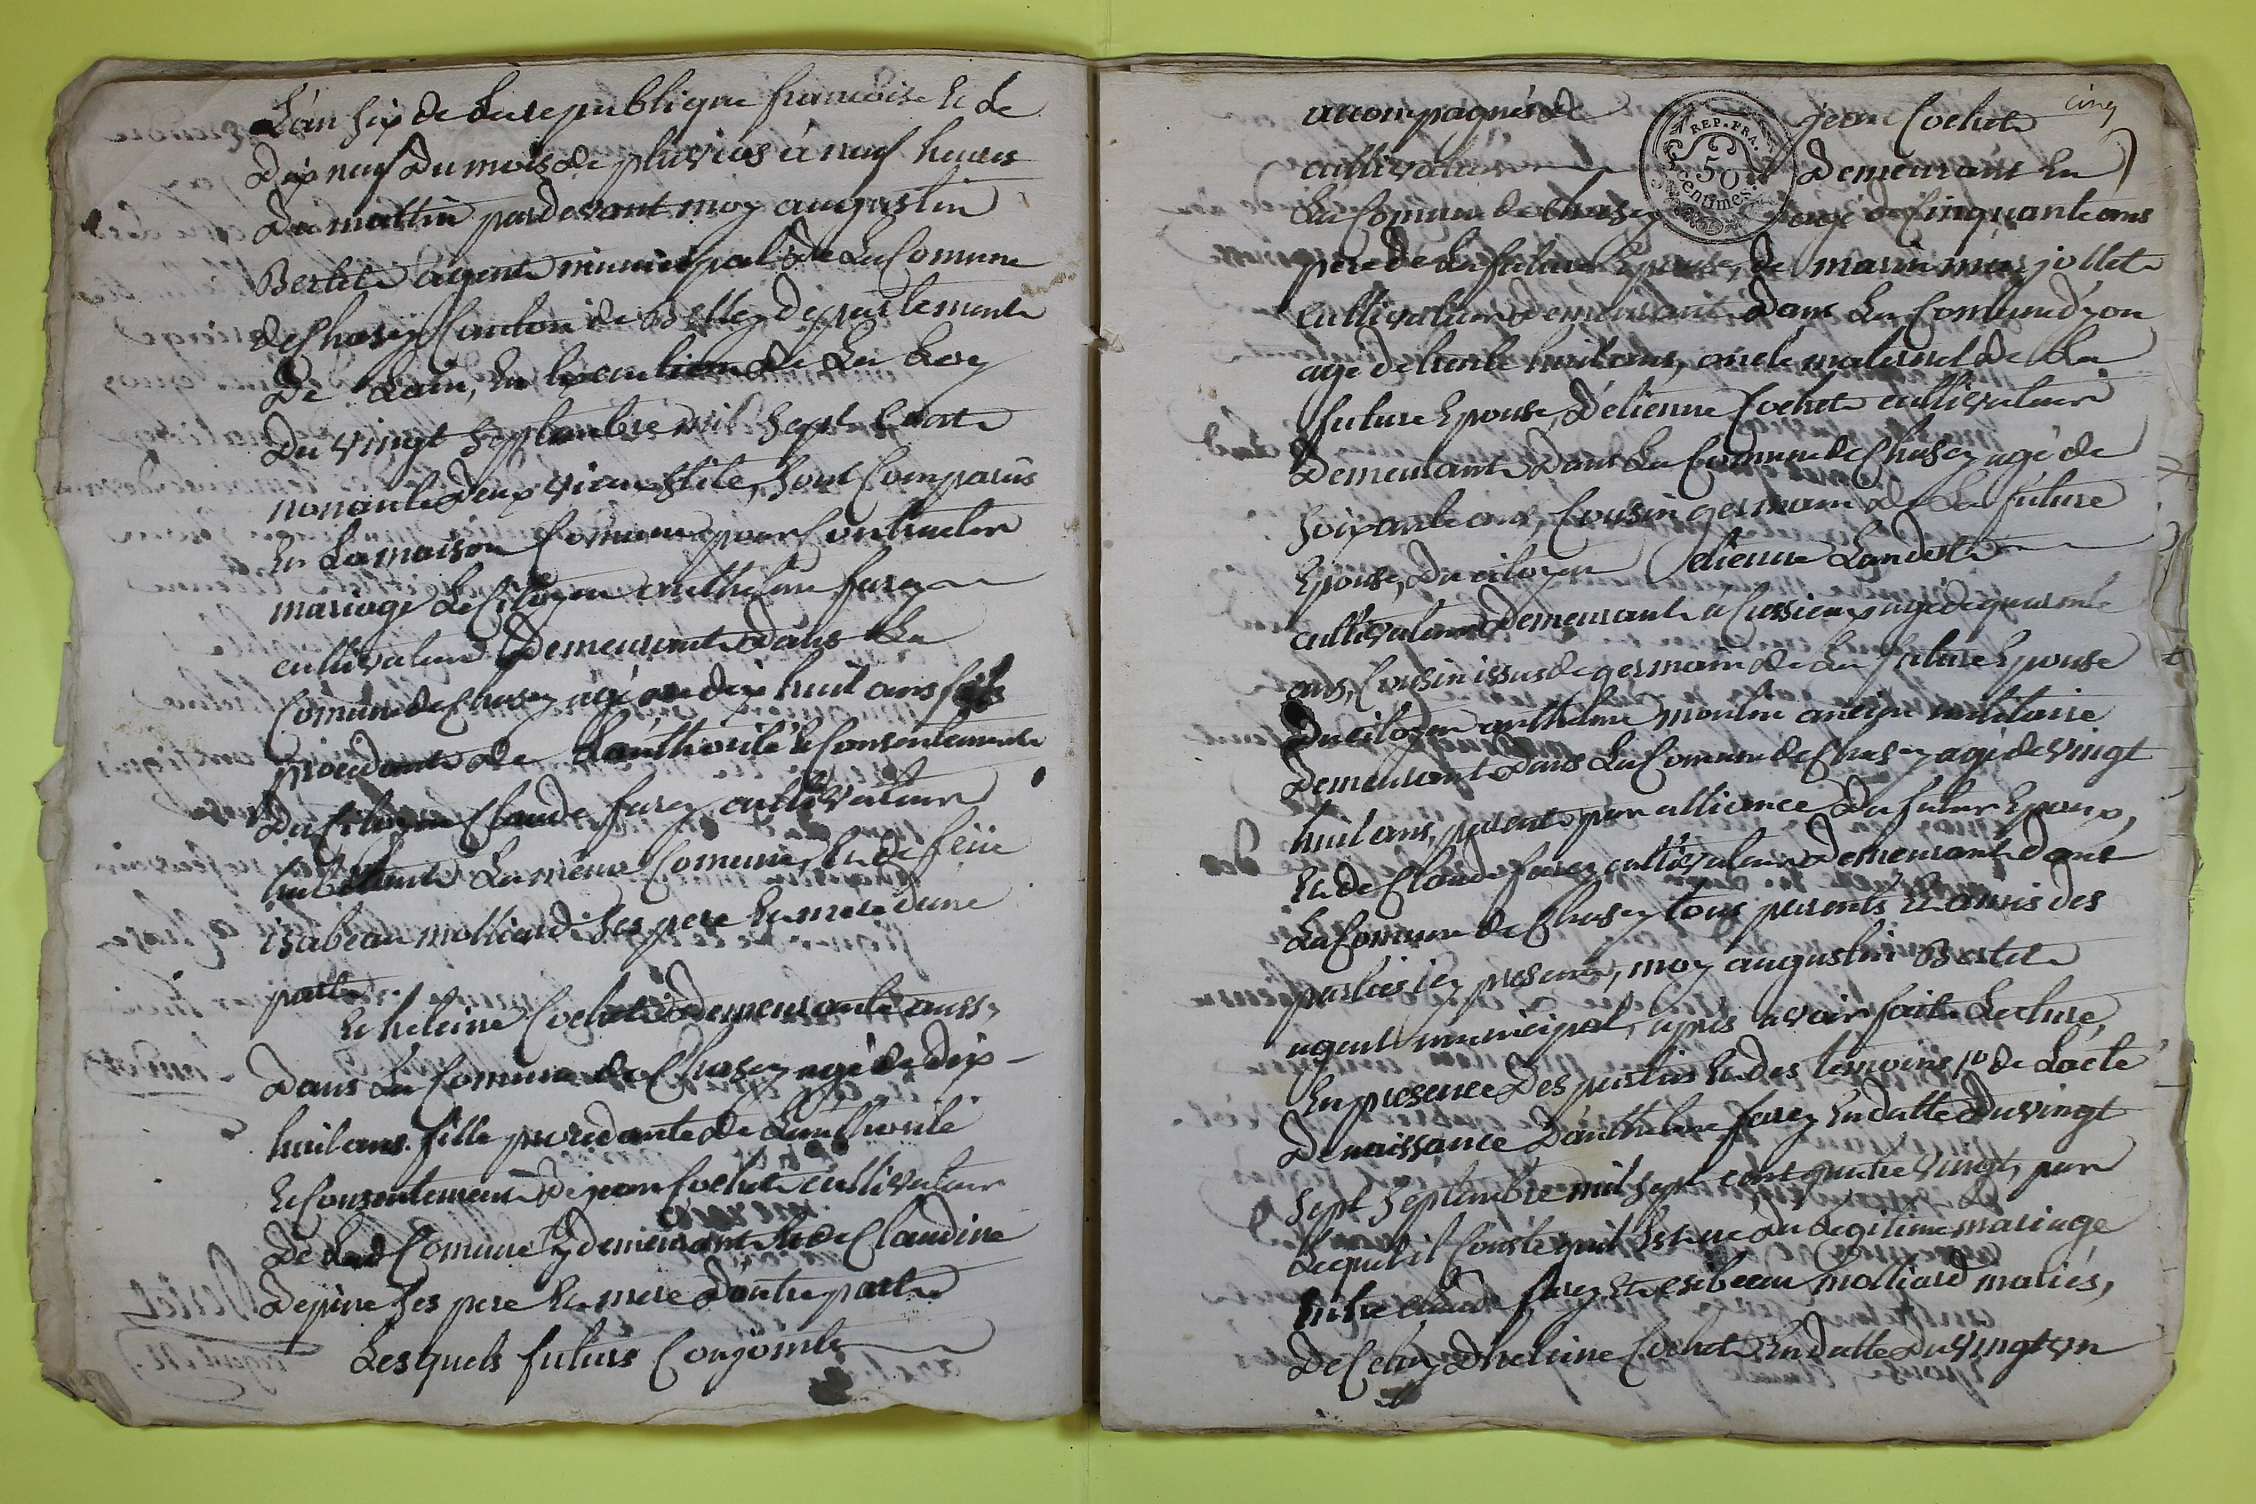 L'an six de la republique francoise Et le
dix neuf du mois de pluvios à neuf heures
du mattin pardevant moy augustin
Bertet agent municipal de La Comune
de Chasey Canton de Belley departement
De Lain, En Execution de La Loy
Du vingt Septembre mil Sept Cent
nonante deux vieux stile, sont Comparüs
En La maison Comune pour Contracter
mariage Le Citoyen anthelme farey
cultivateur Demeurant dans La
Comune de Chasey agé de dix huit ans fils
procedant de L'authorité Et Consentement
Du Citoyen Claude farey cultivateur
habitant La même Comune, Et de feüe
isabeau molliard ses pere Et mere d'une
part
Et heleine Cochet demeurante aussy
Dans La Comune de Chasey agé de dix
huit ans fille procedante de L'authorité
Et Consentement De jean Cochet cultivateur
De Lad Comune y demeurant Et de Claudine
Depire ses pere Et mere D'autre part
Lesquels futurs Conjoints
cinq
accompagnés de jean Cochet
cultivateur Demeurant En
REP. FRA.
50
centimes.
La Comune de Chasey agé de Cinquante ans
pere de La future Epouse, de marin jollet
cultivateur demeurant Dans La Comune d'yon
agé de trente huit ans, oncle maternel de La
future Epouse, D'etienne Cochet cultivateur
Demeurant Dans La Comune de Chasey agé de
soixante ans, Cousin germain de La future
Epouse, Du citoyen etienne Landet
cultivateur Demeurant à Cussieux agé de quarente
ans, Cousin issus de germain de La future Epouse
Du citoyen anthelme moulin ancien militaire
demeurant Dans La Comune de Chasey agé de vingt
huit ans, parent par alliance Du futur Epoux,
Et de Claude farey cultivateur Demeurant dans
La Comune de Chasey tous parents Et amis des
parties icy presents, moy augustin Bertet
agent municipal, après avoir fait Lecture
En presence Des parties Et des temoins 1º de L'acte
De naissance D'anthelme farey En datte du vingt
sept Septembre mil sept cent quatre vingt, par
Lequel il Conste qu'il Est né du Legitime mariage
Entre Claude farey Et isabeau molliard mariés,
De Celuy D'heleine Cochet En datte du vingt un